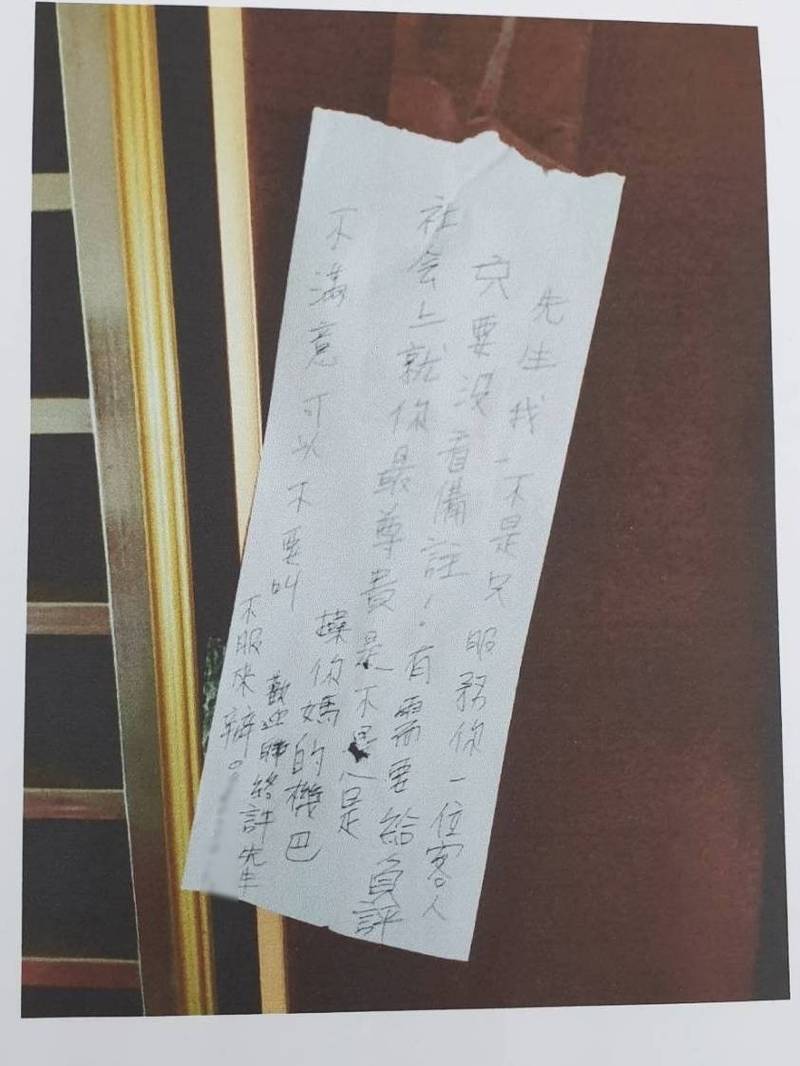 先生我不是只服務你一位客人
只要沒看備註！有需要給負評
社会上就你最尊貴是不是
不滿意可以不要叫
操你媽的機巴
歡迎聯絡許先生
不服來辯。